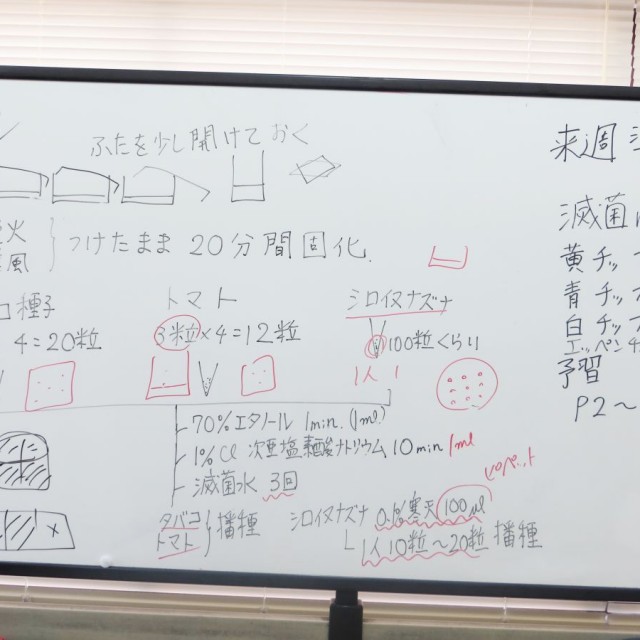 ふたを少し開けておく
火
風
つけたまま 20分間固化.
種子
4=20粒
トマト
3粒×4=12粒
シロイヌナズナ
100粒くらい
1人1
70%エタノール 1min. (1ml)
1%Cl 次亜塩素酸ナトリウム 10min 1ml
滅菌水 3回
タバコ
トマト
播種
シロイヌナズナ 0.1%寒天 100μl
1人10粒～20粒 播種
来週
滅菌
黄チッ
青チッ
白チッ
エッペンチ
予習
P2～